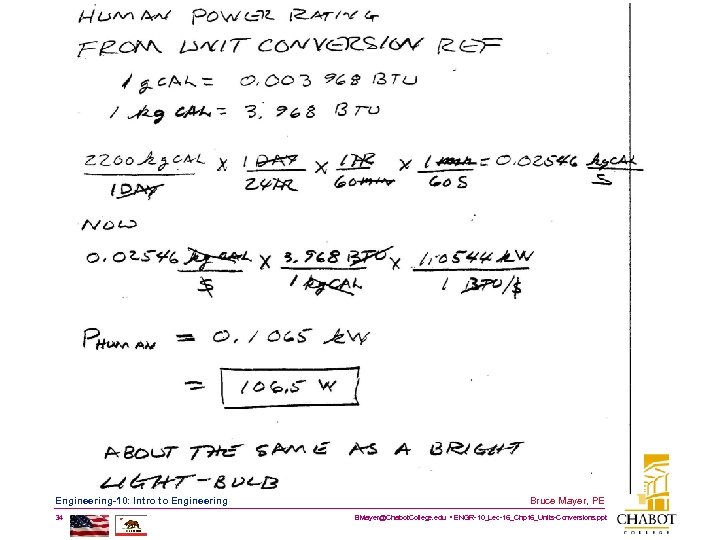 HUMAN POWER RATING
FROM UNIT CONVERSION REF
1 gCAL = 0.003968 BTU
1 kgCAL = 3.968 BTU
2200 kgCAL / 1 DAY × 1 DAY / 24 HR × 1 HR / 60 min × 1 min / 60 S = 0.02546 kgCAL / S
NOW
0.02546 kgCAL / S × 3.968 BTU / 1 kgCAL × 1.0544 kW / 1 BTU/S
P HUMAN = 0.1065 kW
= 106.5 W
ABOUT THE SAME AS A BRIGHT
LIGHT-BULB
Engineering-10: Intro to Engineering
Bruce Mayer, PE
34
BMayer@ChabotCollege.edu • ENGR-10_Lec-16_Chp16_Units-Conversions.ppt
CHABOT
COLLEGE